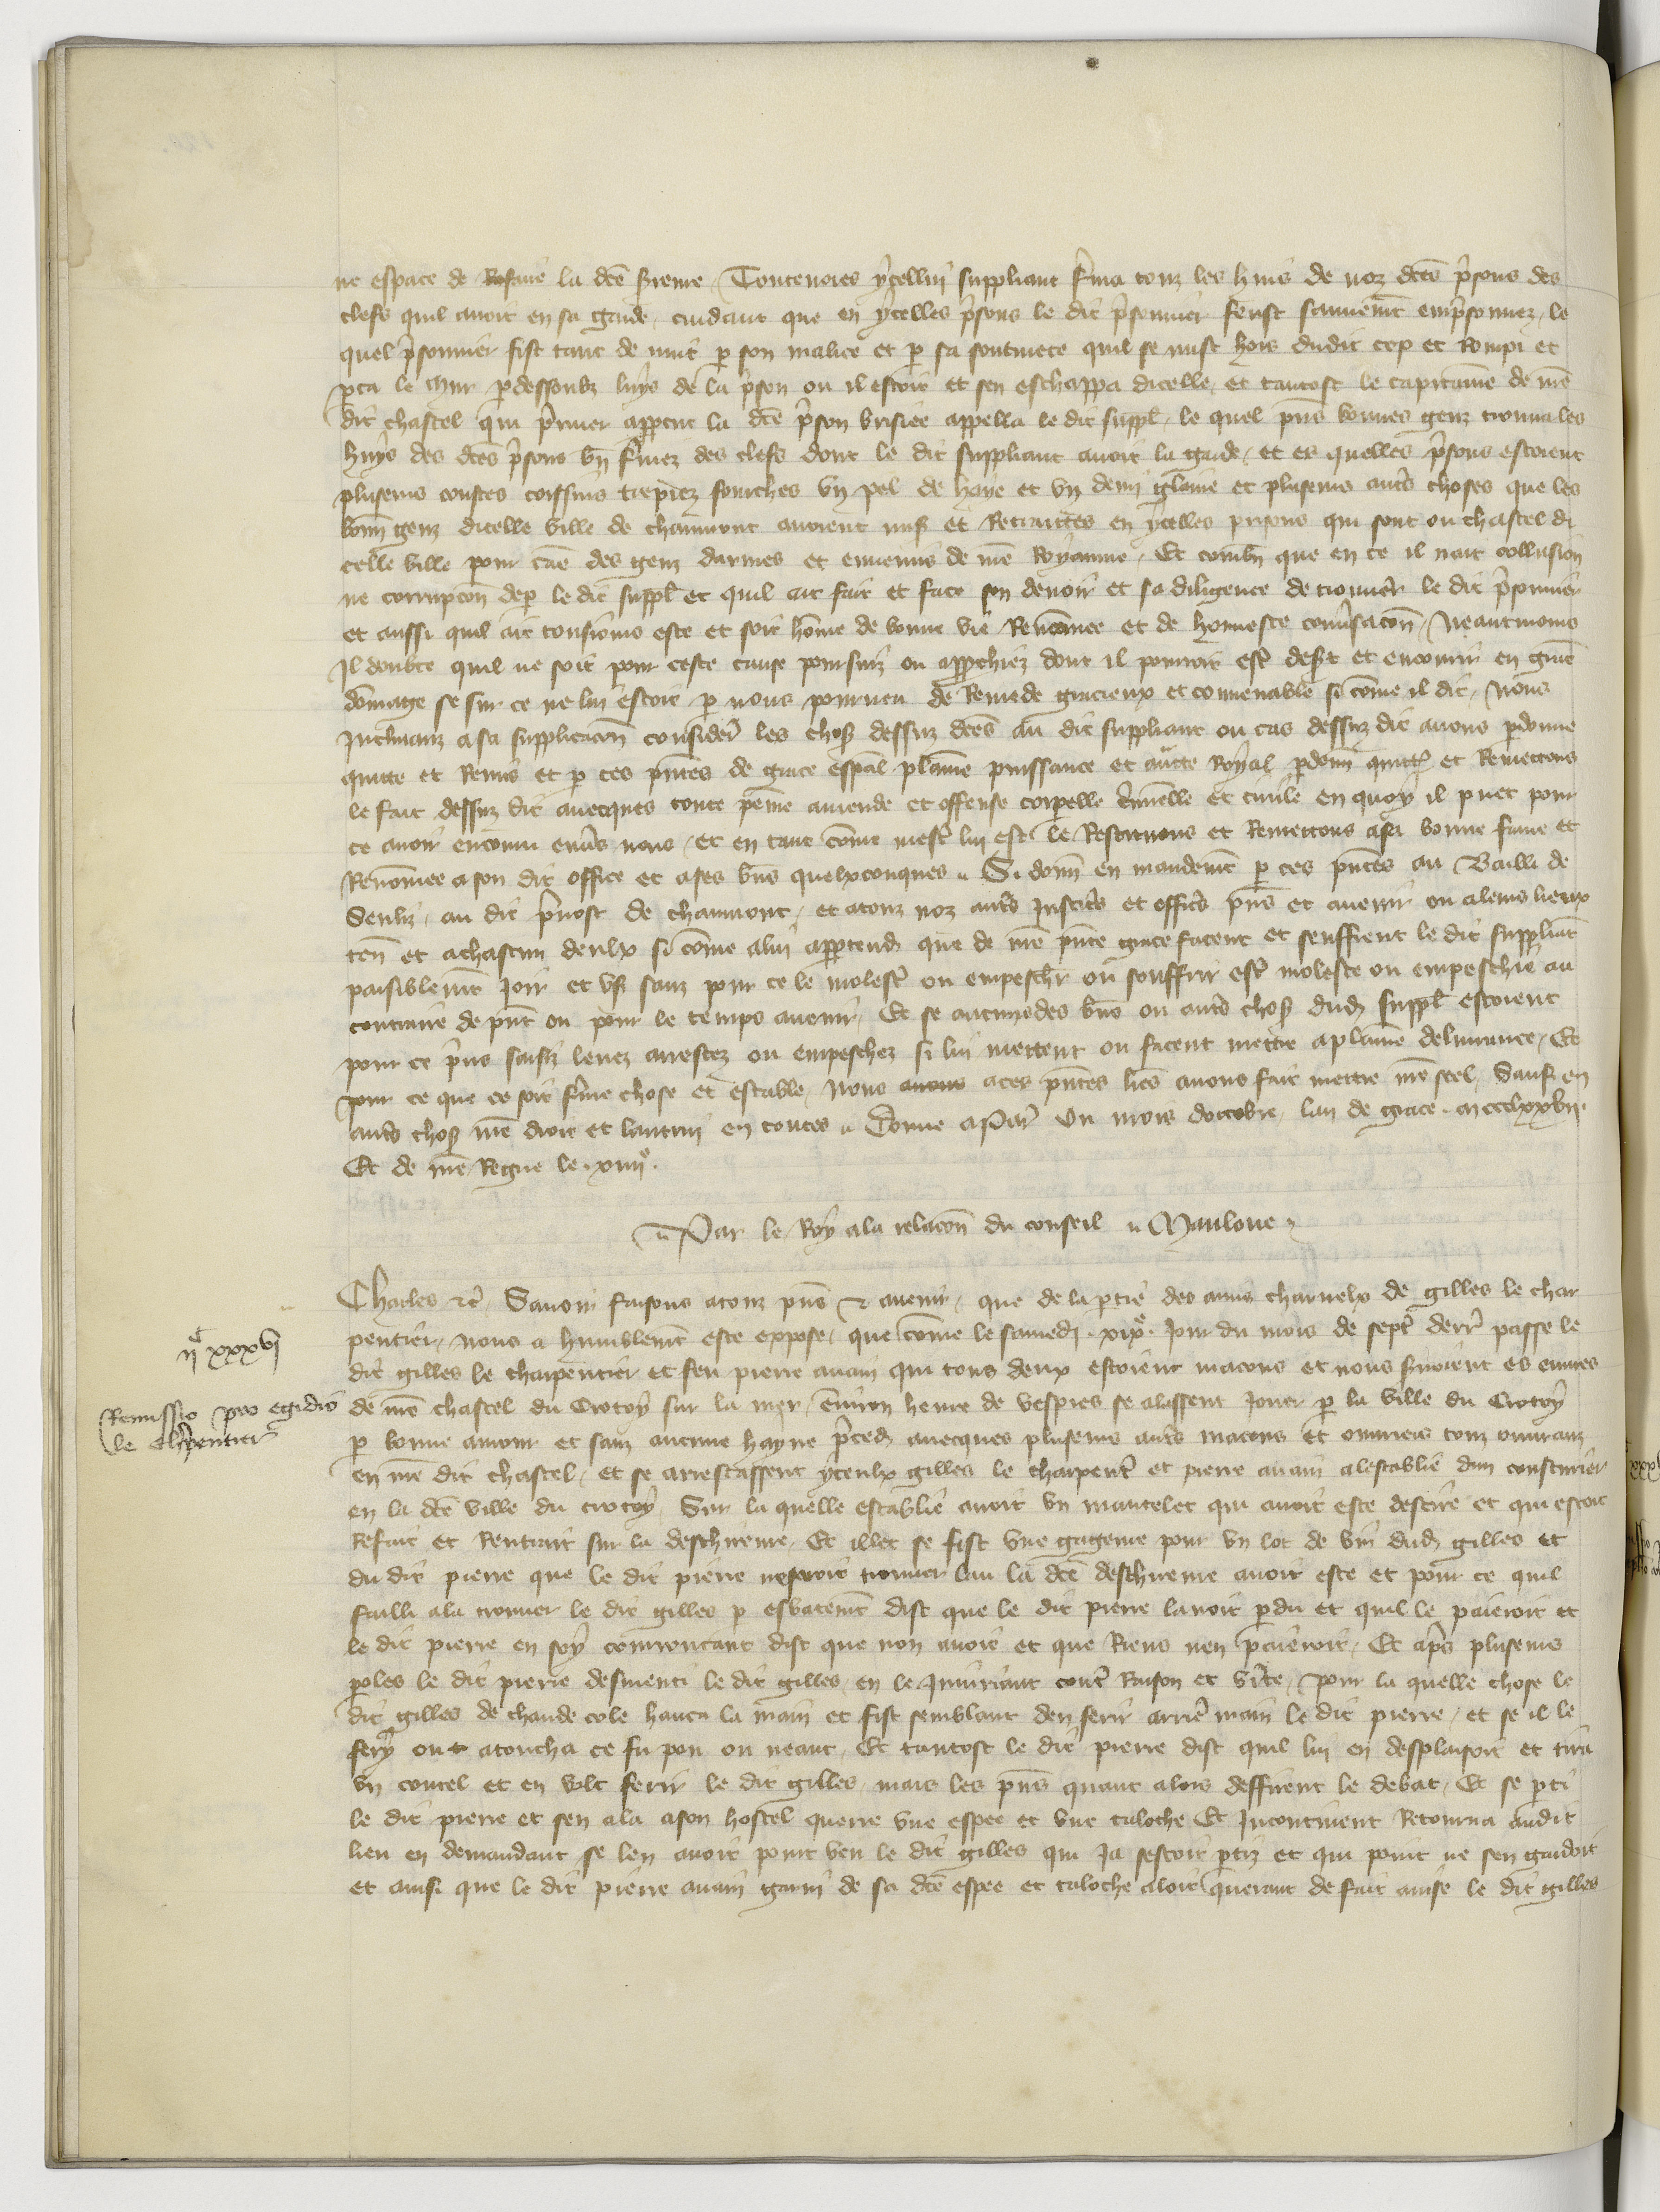 ne espace de Refaire la dcē fermᵉ. Toutevoies ycelluı suppliant ferma touz les huis de noz dcēs p̄sons des
clefs quil avoit en sa garde, cuidant que en ycelles p̄sons le dit p̄sonnier feust seurem̄t emp̄sonnez, le
quel p̄sonnier fist tant de nuit p son malice et p sa soutivete quil se mist hors dudit cep et Rompi et
pca le mur p dessoubz luys de la p̄son ou il estoit et sen eschappa dicelle, et tantost le capitaine de nr̄e
dit chastel qui p̄mier appceut la dcē p̄son brisiee appella le dit suppl̄. le quel p̄ns bonnes genz trouva les
huys des dcēs p̄sons bn̄ fermez des clefs dont le dit suppliant avoit la garde, et es quelles p̄sons estoient
pluseurs coustes coissins trepiez fourches un pel de haye et un demi glaive et pluseurs autr̄s choses que les
bonn̄ genz dicelle ville de chaumont avoient mis et Retraittes en ycelles prisons qui sont ou chastel di
celle ville pour cāe des genz darmes et ennemis de nr̄e Royaume. Et combn̄ que en ce il nait collusion
ne corrupcōn dep le dit suppl̄ et quil ait fait et face son devoir et sa diligence de trouver le dit p̄sonnier
et aussi quil ait tousiours este et soit hōme de bonne vie Renōmee et de honneste conv̄sacōn, Neantmoins
Il doubte quil ne soit pour ceste cause poursuiz ou approchiez dont il pourroit estr̄ desert et encourir en grant
dōmage se sur ce ne lui estoit p nous pourveu de Remede gracieux et convenable si cōme il dit, Nous
Inclinanz a sa supplicacōn consider̄ les choses dessuz dcēs au dit suppliant ou cas dessuz dit avons pdonne
quitte et Remis et p ces p̄ntes de grace esp̄al plaine puissance et auctᵉ Royal pdonn̄ quitt̄ et Remettons
le fait dessuz dit avecques toute peine amende et offense corporelle criminelle et civile en quoy il puet pour
ce avoir encouru env̄s nous, et en tant cōme mestr̄ lui est le Restituons et Remettons a sa bonne fame et
Renōmee a son dit office et a ses bn̄s quelxconques. Si donn̄ en mandem̄t p ces p̄ntes au Bailli de
Senliz, au dit p̄vost de chaumont, et a touz noz autr̄s Justic̄rs et offic̄rs p̄ns et avenir ou a leurs lieux
ten̄ et a chascun deulx si cōme a lui apptendr̄ que de nr̄e p̄nte grace facent et seuffrent le dit suppliāt
paisiblem̄t Joir et user sanz pour ce le molestr̄ ou empeschr̄ ou souffrir estr̄ moleste ou empeschie au
contraire de p̄nt ou pour le temps avenir, Et se aucuns des bn̄s ou autr̄s choses dud̄ suppl̄ estoient
pour ce p̄ns saisiz levez arrestez ou empeschez si lui mettent ou facent mettre a plaine delivrance, Et
pour ce que ce soit ferme chose et estable, Nous avons a ces p̄ntes lrēs avons fait mettre nr̄e seel, Sauf en
autr̄s choses nr̄e droit et lautruy en toutes. Donne a Paris Ou mois doctobre, lan de grace. m ccclxxvıı.
Et de nr̄e Regne le. xıııı⁰.
Par le Roy a la relacōn du conseil. Mauloue
Charles &c̄. Savoir faisons a touz p̄ns & avenir, que de la ptie des amis charnelx de gilles le char
pentier, nous a humblem̄t este expose, que cōme le samedi. xıx⁰. Jour du mois de septr̄ derr̄ passe le
dit gilles le charpentier et feu pierre avain qui tous deux estoient macons et nous servoient es euvres
de nr̄e chastel du Crotoy sur la mer, environ heure de vespres se alassent Jouer p la ville du Crotoy
p bonne amour et sanz aucune hayne p̄ced̄ avecques pluseurs autr̄s macons et ouvriers touz ouvranz
en nr̄e dit chastel, et se arrestassent yceulx gilles le charpentr̄ et pierre avain a lestablie dun cousturier
en la dcē ville du crotoy. Sur la quelle establie avoit un mantelet qui avoit este descire et qui estoit
Refait et Rentrait sur la descireure. Et illec se fist une gageure pour un lot de vin dud̄ gilles et
du dit pierre que le dit pierre ne saroit trouver lau la dcē descireure avoit este et pour ce quil
failli a la trouver le dit gilles p esbatem̄t dist que le dit pierre lavoit pdu et quil le paieroit et
le dit pierre en soy courroucant dist que non avoit et que Riens nen paieroit, Et apr̄s pluseurs
poles le dit pierre desmenti le dit gilles, en le Iniuriant contr̄ Raison et v̄ite, Pour la quelle chose le
dit gilles de chaude cole hauca la main et fist semblant den ferir arriēmain le dit pierre, et se il le
fery ou atoucha ce fu pou ou neant, Et tantost le dit pierre dist quil lui en desplaisoit et tira
un coutel et en volt ferir le dit gilles, mais les p̄ns quant alors deffirent le debat, Et se pti
le dit pierre et sen ala a son hostel querre une espee et une taloche Et Incontinent Retourna audit
lieu en demandant se len avoit point veu le dit gilles qui Ja sestoit ptiz et qui point ne sen gardoit
et ainsi que le dit pierre avain garni de sa dcē espee et taloche aloit querant de fait avise le dit gilles
ıı^c xxxvı
Remissio pro egidio
le charpentier